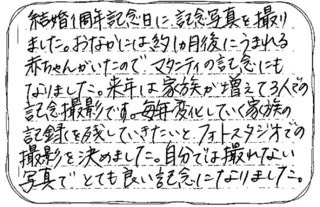 結婚1周年記念日に、記念写真を撮り
ました。おなかには約1か月後にうまれる
赤ちゃんがいたので マタニティの記念にも
なりました。来年は家族が増えて3人での
記念撮影です。毎年変化していく家族の
記録を残していきたいと、フォトスタジオでの
撮影を決めました。自分では撮れない
写真で とても良い記念になりました。